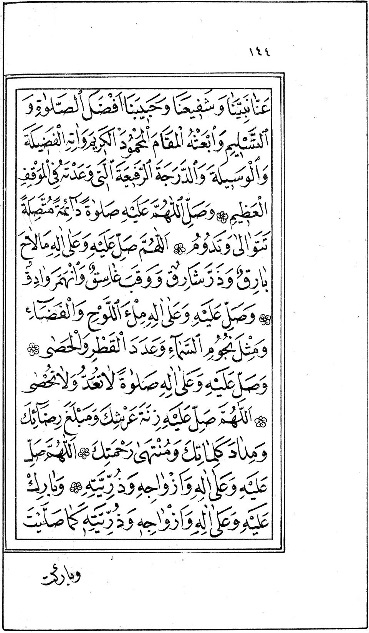 ١٤٤
عَنَّا نَبِيَّنَا وَشَفِيعَنَا وَحَبِيبَنَا اَفْضَلَ الصَّلٰوةِ وَ
التَّسْلِيمِ وَابْعَثْهُ الْمَقَامَ الْمَحْمُودَ الْكَرِيمَ وَاٰتِهِ الْفَضِيلَةَ
وَالْوَسِيلَةَ وَالدَّرَجَةَ الرَّفِيعَةَ الَّتِى وَعَدْتَهُ فِى الْمَوْقِفِ
الْعَظِيمِ ۞ وَصَلِّ اللّٰهُمَّ عَلَيْهِ صَلٰوةً دَائِمَةً مُتَّصِلَةً
تَتَوَالٰى وَتَدُومُ ۞ اَللّٰهُمَّ صَلِّ عَلَيْهِ وَعَلٰى اٰلِهِ مَا لَاحَ
بَارِقٌ وَذَرَّ شَارِقٌ وَوَقَبَ غَاسِقٌ وَانْهَمَرَ وَادِقٌ
۞ وَصَلِّ عَلَيْهِ وَعَلٰى اٰلِهِ مِلْءَ اللَّوْحِ وَالْفَضَاءِ
وَمِثْلَ نُجُومِ السَّمَاءِ وَعَدَدَ الْقَطْرِ وَالْحَصٰى ۞
وَصَلِّ عَلَيْهِ وَعَلٰى اٰلِهِ صَلٰوةً لَا تُعَدُّ وَلَا تُحْصٰى
۞ اَللّٰهُمَّ صَلِّ عَلَيْهِ زِنَةَ عَرْشِكَ وَمَبْلَغَ رِضَائِكَ
وَمِدَادَ كَلِمَاتِكَ وَمُنْتَهٰى رَحْمَتِكَ ۞ اَللّٰهُمَّ صَلِّ
عَلَيْهِ وَعَلٰى اٰلِهِ وَاَزْوَاجِهِ وَذُرِّيَّتِهِ ۞ وَبَارِكْ
عَلَيْهِ وَعَلٰى اٰلِهِ وَاَزْوَاجِهِ وَذُرِّيَّتِهِ كَمَا صَلَّيْتَ
وباركت